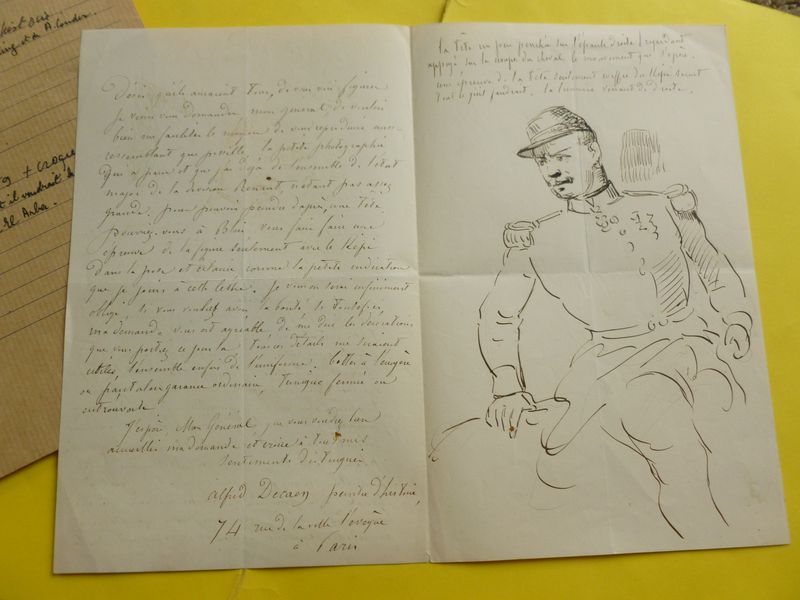 qu'ils auraient tous, de vous voir figurer
je viens vous demander mon général, de vouloir
bien me faciliter le moyen de vous reproduire aussi
ressemblant que possible, la petite photographie
qui a paru et que j'ai déjà de l'ensemble de l'état
major de la division Renault, n'étant pas assez
grande, pour pouvoir peindre d'après, une tête
pourriez-vous à Blois vous faire faire une
épreuve de la figure seulement avec le Képi
dans la pose et éclairée comme la petite indication
que je joins à cette lettre. Je vous en serai infiniment
obligé, si vous vouliez avoir la bonté si toutefois
ma demande vous est agréable de me dire les décorations
que vous portiez ce jour là tous ces détails me seraient
utiles, l'ensemble enfin de l'uniforme. bottes à l'écuyère
ou pantalon garance ordinaire, tunique fermée ou
entrouverte
J'espère Mon Général, que vous voudrez bien
accueillir ma demande et croire à tous mes
sentiments distingués
alfred Decaen peintre d'histoire,
74 rue de la ville l'évêque
à Paris
la tête un peu penchée sur l'épaule droite regardant
appuyé sur la croupe du cheval le mouvement que s'opère.
une épreuve de la tête seulement coiffée du Képi serait
la lumière venant de droite.